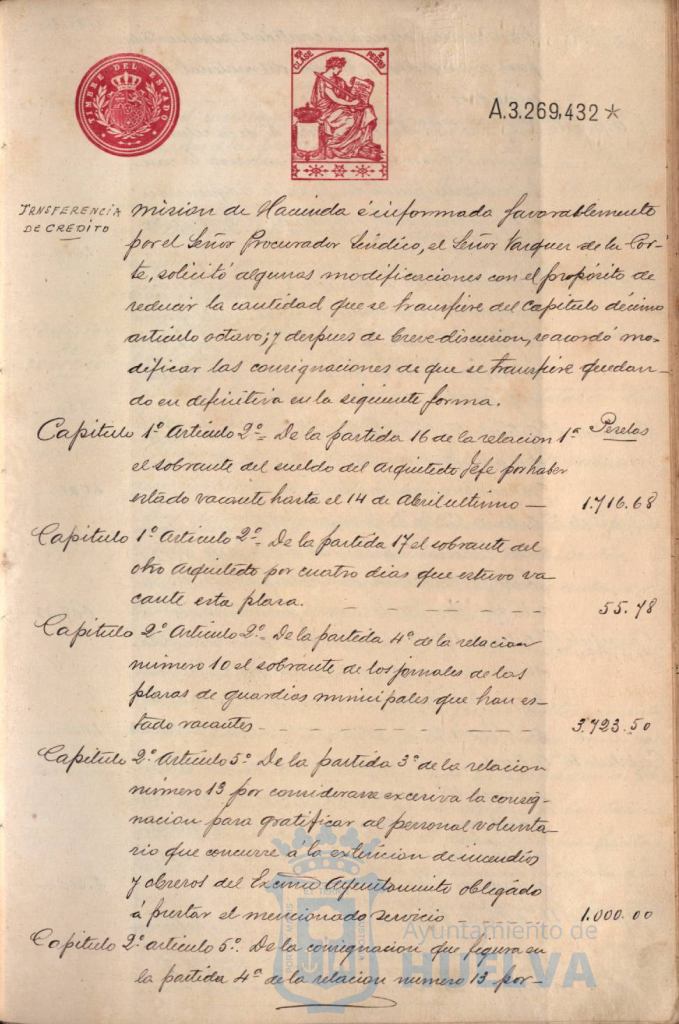 TIMBRE DEL ESTADO
CLASE
A.3.269,432*
TRANSFERENCIA
DE CREDITO
mision de Hacienda é informada favorablemente
por el Señor Procurador Síndico, el Señor Vazquez de la Cor-
te, solicitó algunas modificaciones con el propósito de
reducir la cantidad que se transfiere del Capítulo décimo
artículo octavo; y despues de breve discusion, se acordó mo-
dificar las consignaciones de que se transfiere quedan-
do en definitiva en la siguiente forma.
Capitulo 1º Artículo 2º= De la partida 16 de la relacion 1ª
Pesetas
el sobrante del sueldo del Arquitecto Jefe por haber
estado vacante hasta el 14 de Abril ultimo — 1.716.68
Capitulo 1º Artículo 2º= De la partida 17 el sobrante del
otro Arquitecto por cuatro dias que estuvo va
cante esta plaza. 55.78
Capitulo 2º Artículo 2º= De la partida 4ª de la relacion
número 10 el sobrante de los jornales de las
plazas de guardias municipales que han es-
tado vacantes 3.723.50
Capitulo 2º Artículo 5º De la partida 3ª de la relacion
número 13 por considerarse excesiva la consig-
nacion para gratificar al personal volunta-
rio que concurre á la extincion de incendios
y obreros del Excmo Ayuntamiento obligado
á prestar el mencionado servicio 1.000.00
Capitulo 2º artículo 5º. De la consignacion que figura en
la partida 4ª de la relacion número 13 por-
Ayuntamiento de
HUELVA